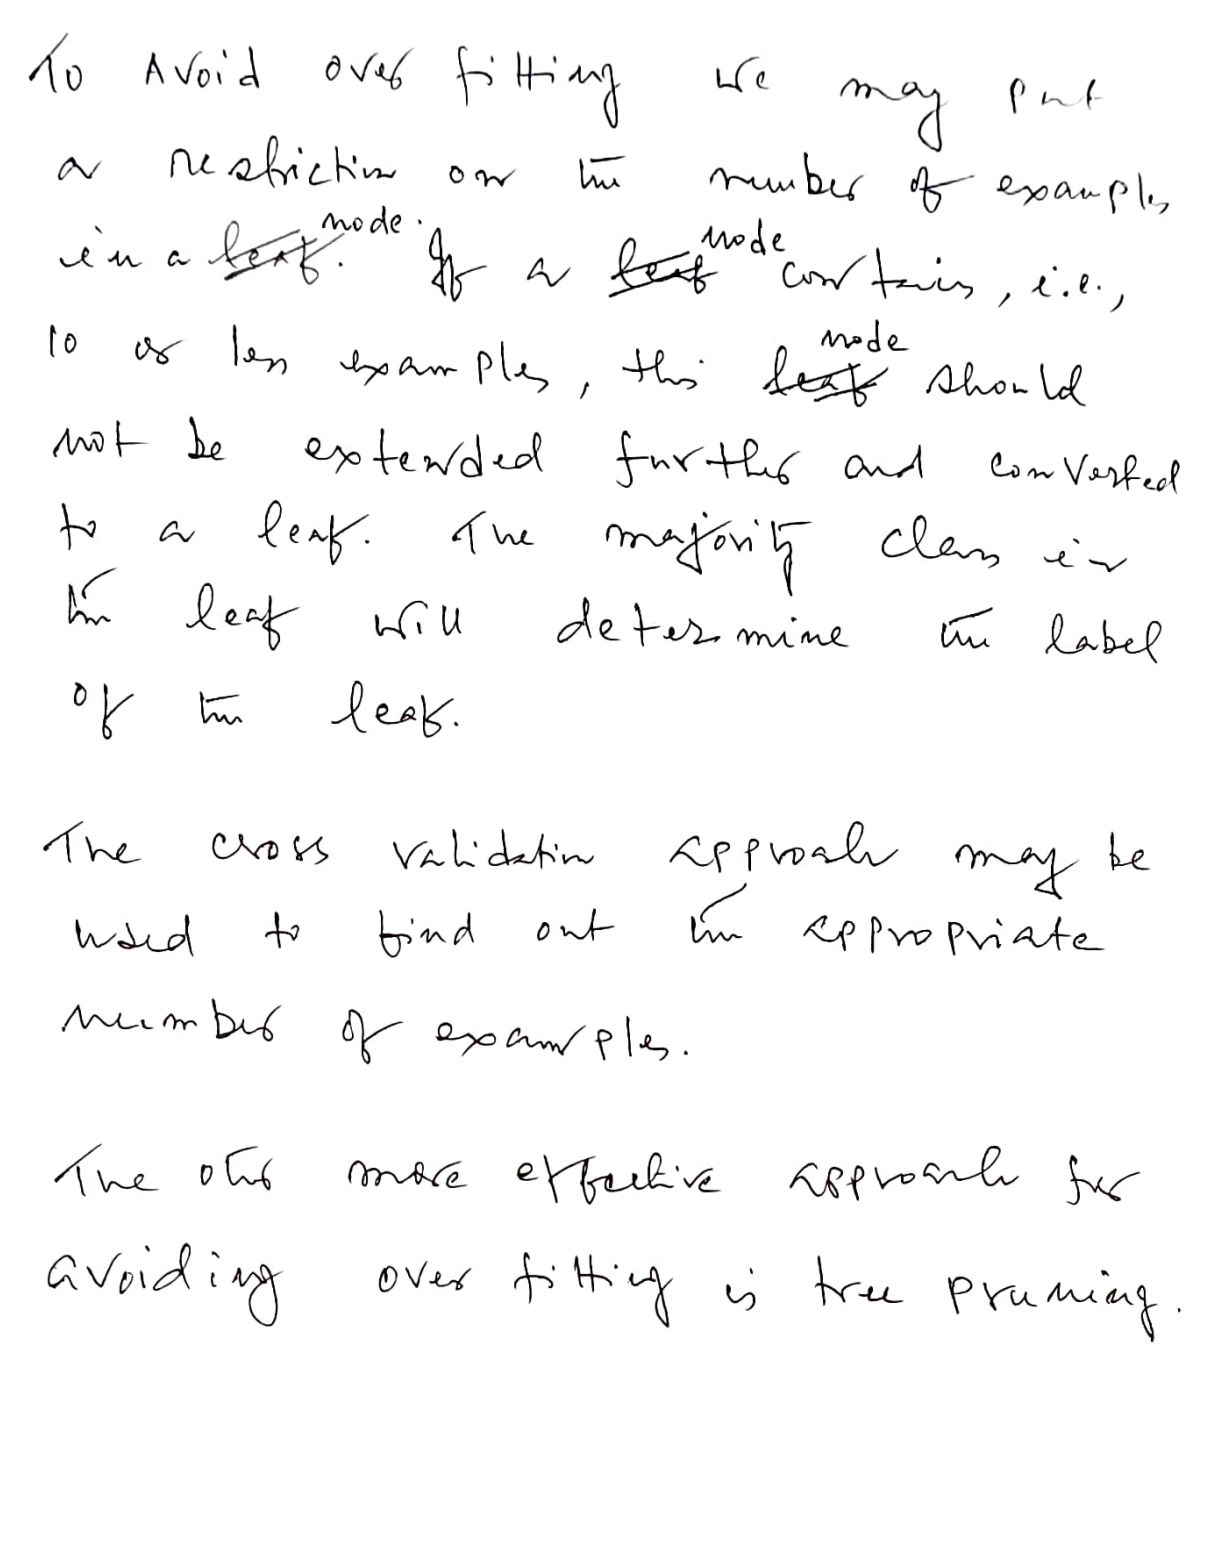 To Avoid over fitting we may put
a restriction on the number of examples
in a leaf. node. If a leaf node contains, i.e.,
10 or less examples, this leaf node should
not be extended further and converted
to a leaf. The majority class in
the leaf will determine the label
of the leaf.
The cross validation approach may be
used to find out the appropriate
number of examples.
The other more effective approach for
avoiding over fitting is tree pruning.